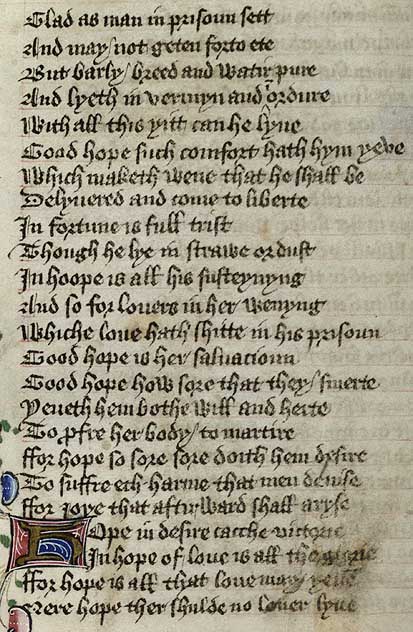 Glad as man in prisoun sett
And may not geten forto ete
But barly breed and watir pure
And lyeth in vermyn and ordure
With all this yitt can he lyve
Good hope such comfort hath hym yeve
Which maketh wene that he shall be
Delyvered and come to liberte
In fortune is full trist
Though he lye in strawe or dust
In hoope is all his susteynyng
And so for lovers in her wenyng
Whiche love hath shitte in his prisoun
Good hope is her salvacioun
Good hope how sore that they smerte
Yeveth hem bothe will and herte
To pfre her body to martire
ffor hope so sore sore doith hem dysire
To suffre ech harme that men devise
ffor joye that aftirward shall aryse
Hope in desire cacche victorie
In hope of love is all the glorie
ffor hope is all that love may yeve
Nere hope ther shulde no lover lyve